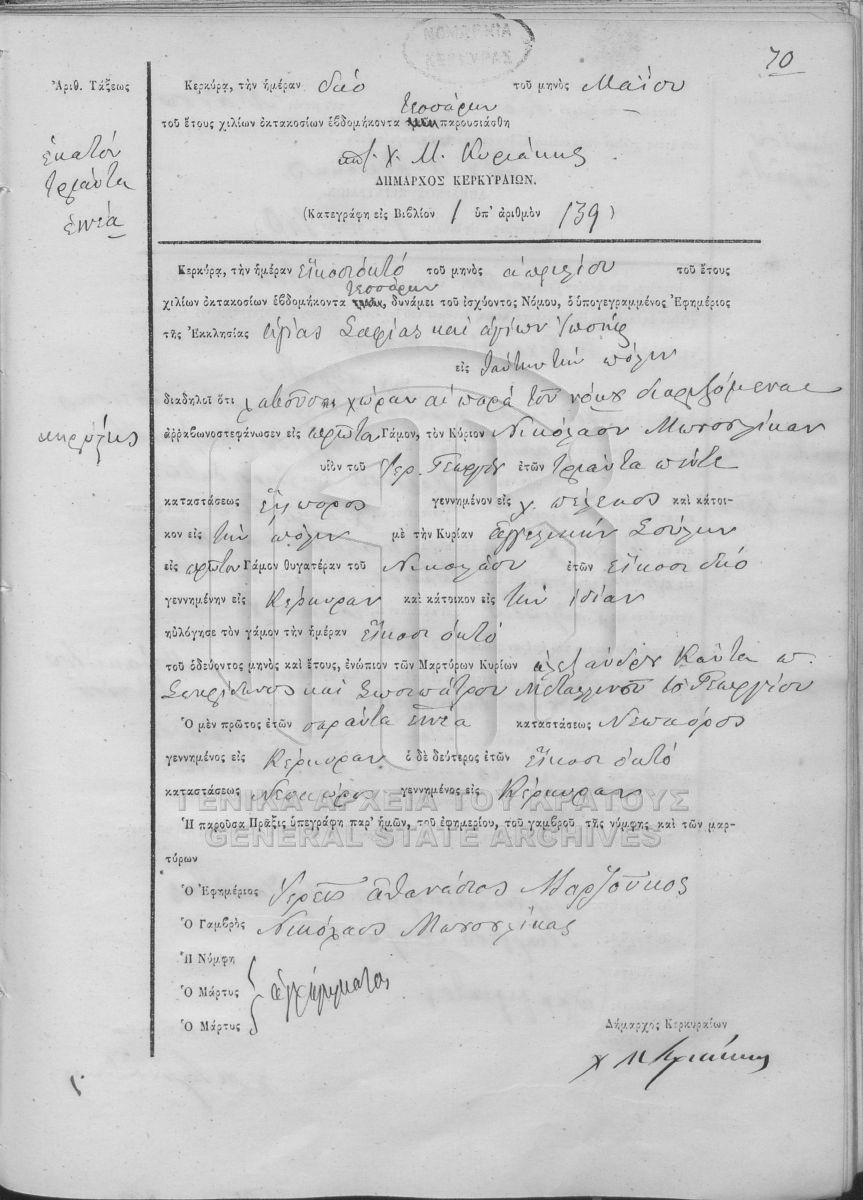 ΝΟΜΑΡΧΙΑ
ΚΕΡΚΥΡΑΣ
70
Ἀριθ. Τάξεως
ἑκατόν
τριάντα
ἐννέα
Κερκύρᾳ, τὴν ἡμέραν δύο τοῦ μηνὸς Μαΐου
τεσσάρων
τοῦ ἔτους χιλίων ὀκτακοσίων ἑβδομήκοντα παρουσιάσθη
Χ. Μ. Κυριάκης
ΔΗΜΑΡΧΟΣ ΚΕΡΚΥΡΑΙΩΝ.
(Κατεγράφη εἰς Βιβλίον 1 ὑπ' ἀριθμὸν 139)
Κερκύρᾳ, τὴν ἡμέραν εἴκοσι ὀκτό τοῦ μηνὸς ἀπριλίου τοῦ ἔτους
τεσσάρων
χιλίων ὀκτακοσίων ἑβδομήκοντα δυνάμει τοῦ ἰσχύοντος Νόμου, ὁ ὑπογεγραμμένος Ἐφημέριος
τῆς Ἐκκλησίας ἁγίας Σοφίας καὶ ἁγίων
εἰς ταύτην τὴν πόλιν
διαδηλοῖ ὅτι λαβοῦσαι χώραν αἱ παρὰ τοῦ νόμου διοριζόμεναι
κηρύξεις
ἀῤῥαβωνοστεφάνωσεν εἰς πρῶτον Γάμον, τὸν Κύριον Νικόλαον
υἱὸν τοῦ Γεωργίου ἐτῶν τριάντα πέντε
καταστάσεως ἔμπορος γεννημένον εἰς χ. πέλεκας καὶ κάτοι-
κον εἰς τὴν πόλιν μὲ τὴν Κυρίαν ἀγγελικὴν Σούλην
εἰς πρῶτον Γάμον θυγατέραν τοῦ Νικολάου ἐτῶν εἴκοσι δύο
γεννημένην εἰς Κέρκυραν καὶ κάτοικον εἰς τὴν ἰδίαν
ηὐλόγησε τὸν γάμον τὴν ἡμέραν εἴκοσι ὀκτό
τοῦ ὁδεύοντος μηνὸς καὶ ἔτους, ἐνώπιον τῶν Μαρτύρων Κυρίων ἀλεξάνδρου
καὶ Σωσιπάτρου τοῦ Γεωργίου
Ὁ μὲν πρῶτος ἐτῶν σαράντα ἐννέα καταστάσεως Νεωκόρος
γεννημένος εἰς Κέρκυραν ὁ δὲ δεύτερος ἐτῶν εἴκοσι ὀκτό
καταστάσεως Νεοκόρος γεννημένος εἰς Κέρκυραν
ΓΕΝΙΚΑ ΑΡΧΕΙΑ ΤΟΥ ΚΡΑΤΟΥΣ
GENERAL STATE ARCHIVES
Ἡ παροῦσα Πρᾶξις ὑπεγράφη παρ' ἡμῶν, τοῦ ἐφημερίου, τοῦ γαμβροῦ τῆς νύμφης καὶ τῶν μαρ-
τύρων
Ὁ Ἐφημέριος Ἱερεὺς ἀθανάσιος Μαρζοῦκος
Ὁ Γαμβρὸς Νικόλαος
Ἡ Νύμφη
Ὁ Μάρτυς ἀγράμματος
Ὁ Μάρτυς
Δήμαρχος Κερκυραίων
Χ Μ Κυριάκης